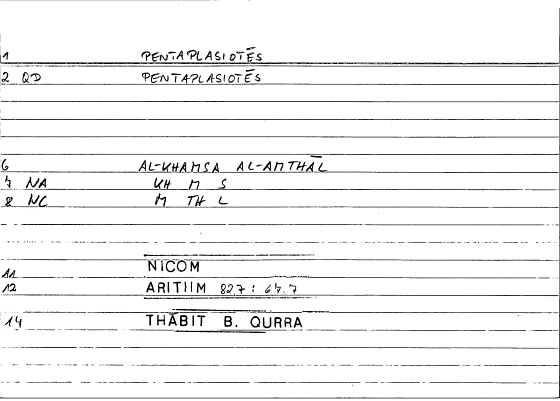 1 PENTAPLASIOTĒS
2 QD PENTAPLASIOTĒS
6 AL-KHAMSA AL-AMTHĀL
7 NA KH M S
8 NC M TH L
11 NICOM
12 ARITHM 82,7 : 67.7
14 THĀBIT B. QURRA